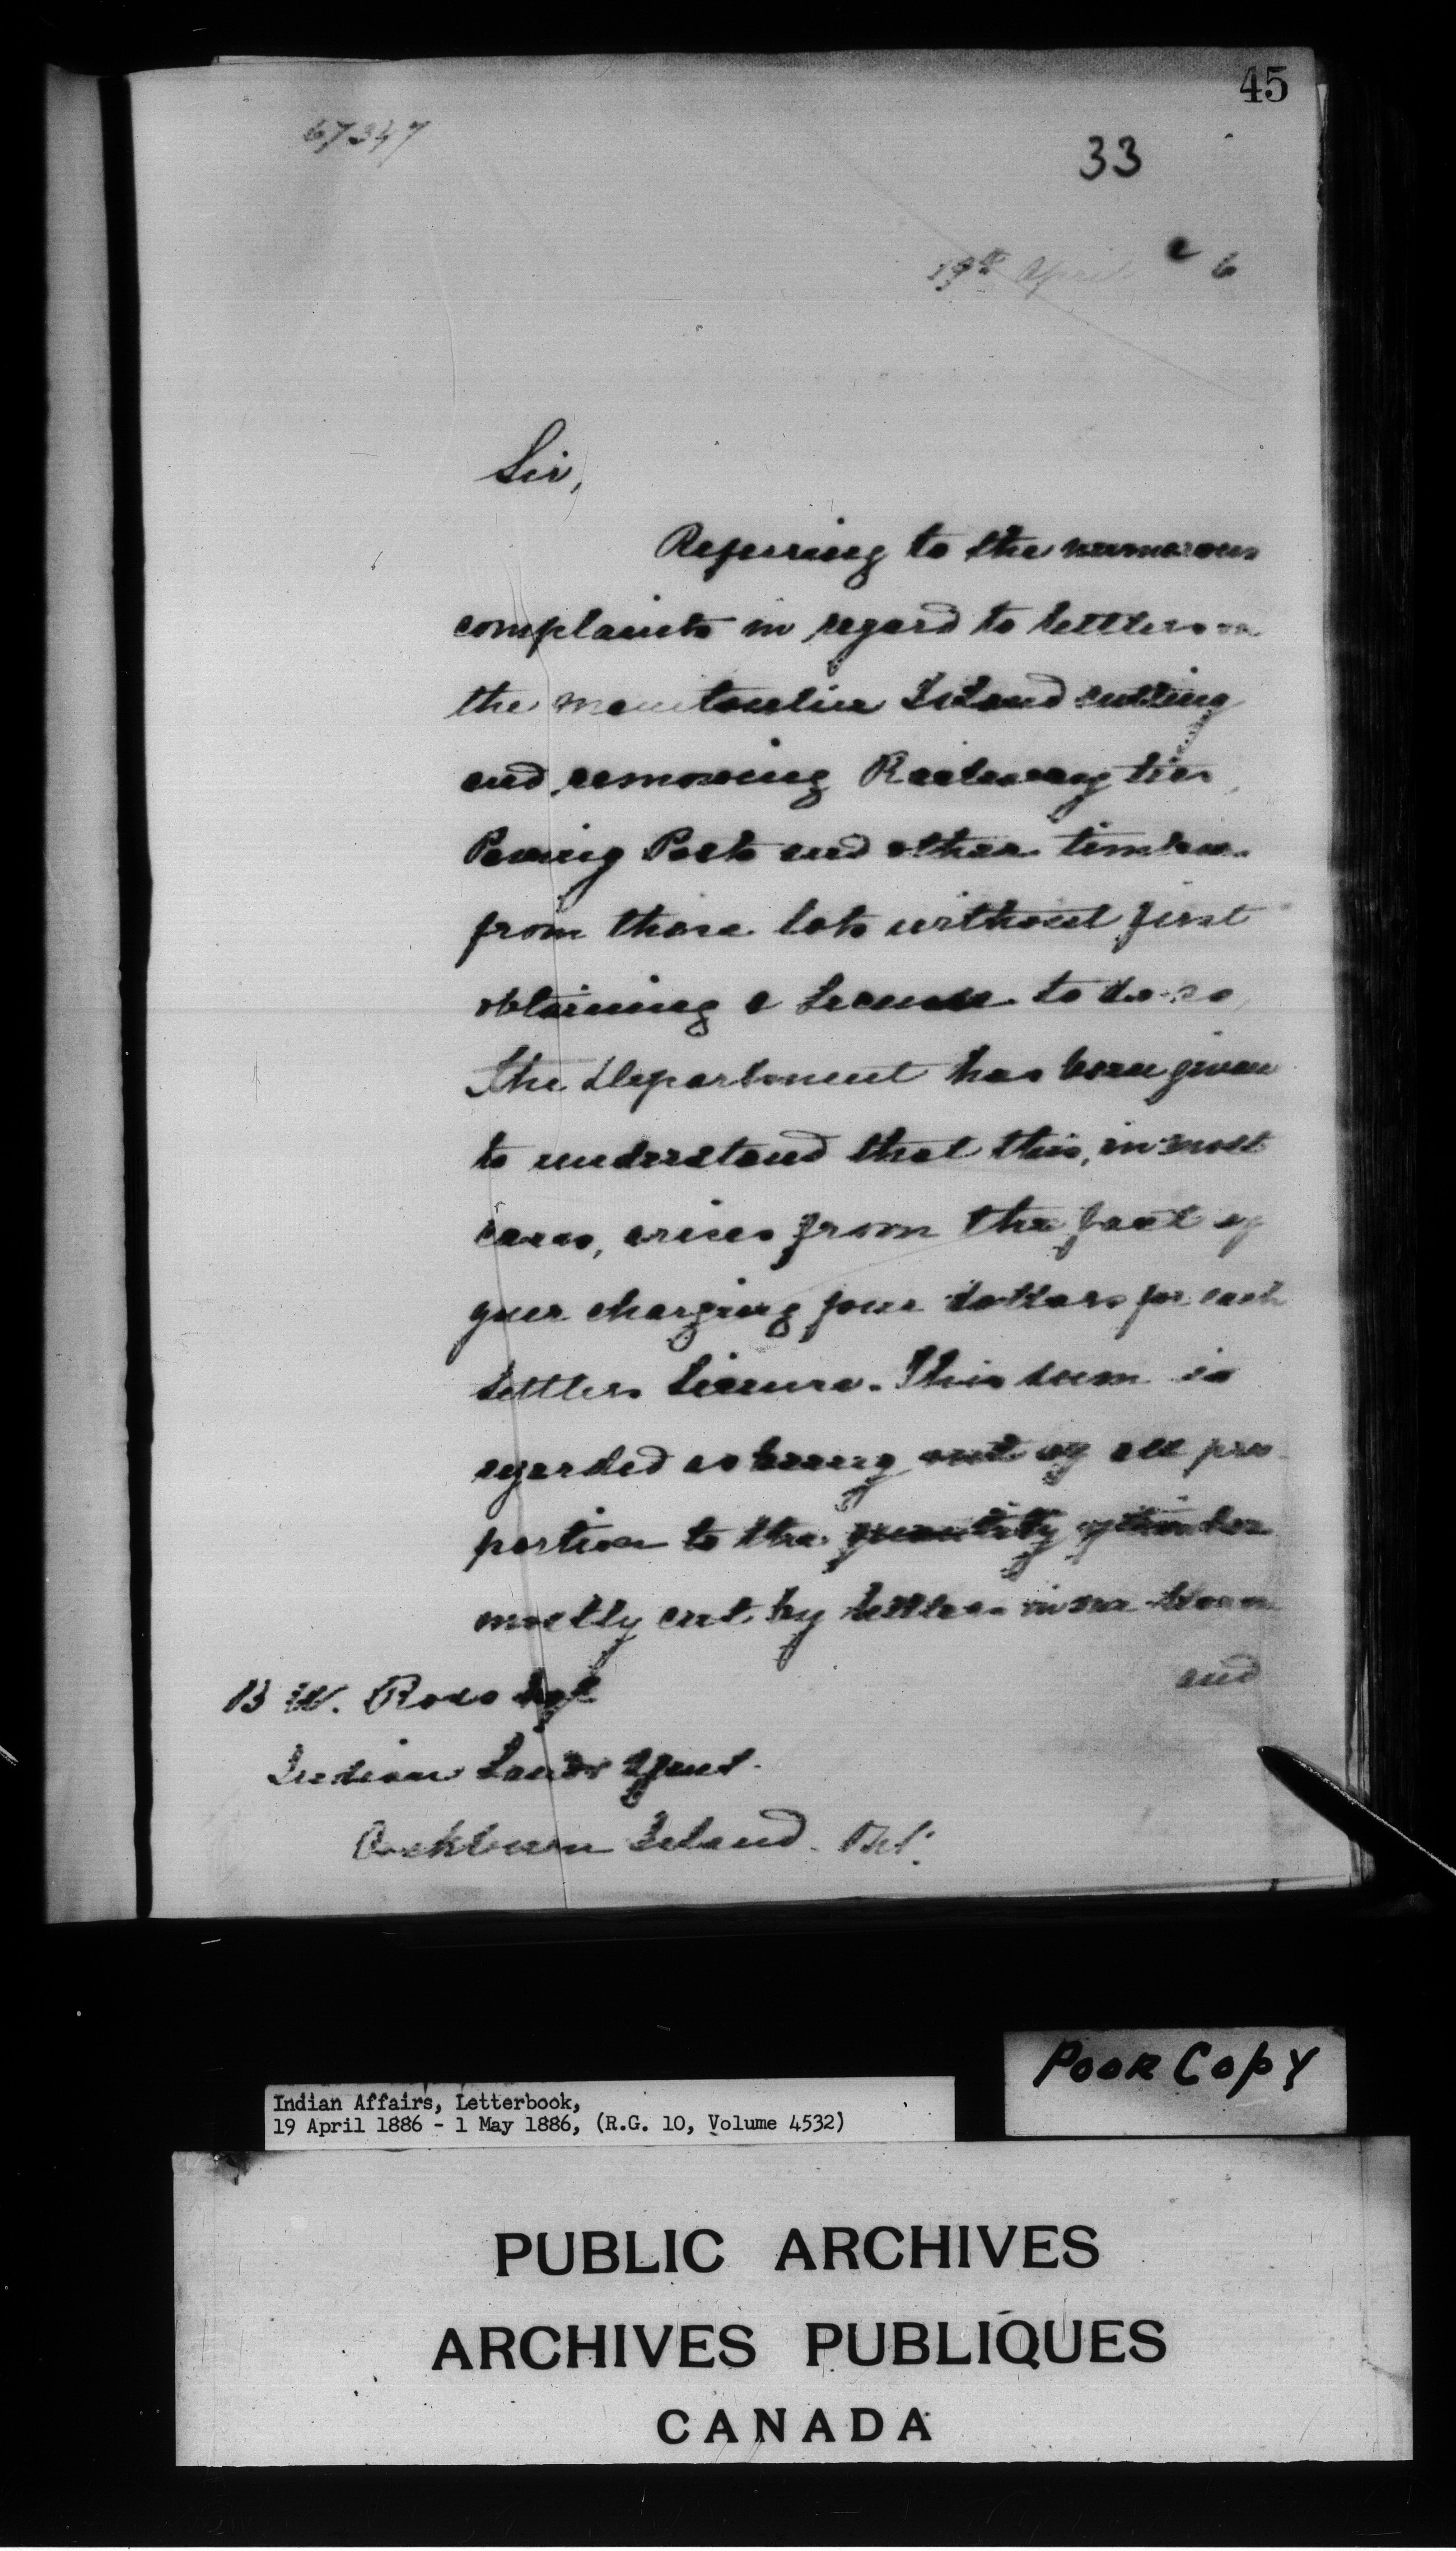 45
67347
33
19th April 6
Sir,
Referring to the numerous
complaints in regard to settlers on
the Manitoulin Island cutting
and removing Railway ties,
Paving Posts and other timber
from those lots without first
obtaining a License to do so,
the Department has been given
to understand that this, in most
cases, arises from the fact of
your charging four dollars for each
settlers license. This sum is
regarded as being out of all pro-
portion to the quantity of timber
mostly cut by settlers
and
B W. Ross Esqr
Indian Lands Agent.
Cockburn Island. Ont.
POOR COPY
Indian Affairs, Letterbook,
19 April 1886 - 1 May 1886, (R.G. 10, Volume 4532)
PUBLIC ARCHIVES
ARCHIVES PUBLIQUES
CANADA